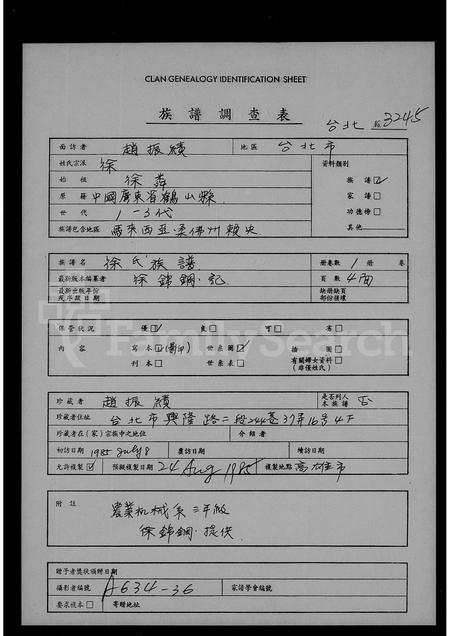 CLAN GENEALOGY IDENTIFICATION SHEET
族譜調查表
台北 3245
面訪者 趙振績 地區 台北市
姓氏宗派 徐 資料類別
始祖 徐森 族譜☑
原籍 中國廣東省鶴山縣 家譜□
世代 1-3代 功德榜□
族譜包含地區 馬來西亞柔佛州賴央 其他
族譜名 徐氏族譜 册卷數 1 册 卷
最新版本編纂者 徐錦鋼·記 頁數 4面
最新出版年份或序跋日期 缺册缺頁部份情境
保管狀況 優☑ 良□ 可□ 布□
內容 寫本☑(影印) 世系圖☑ 插圖□
刊本□ 世系表□ 有關婦女資料(非僅姓氏)□
珍藏者 趙振績 是否列入本族譜 否
珍藏者住址 台北市興隆路二段244巷37弄16号4F
珍藏者在(家)宗族中之地位 介紹者
初訪日期 1985 July 8 覆訪日期 續訪日期
允許複製☑ 預擬複製日期 24 Aug 1985 複製地點 高雄市
附註 農業机械系三年級
徐錦鋼·提供
贈予者獎狀頒贈日期
攝影者編號 A634-36 家譜學會編號
要求複本□ 寄贈地址
FamilySearch